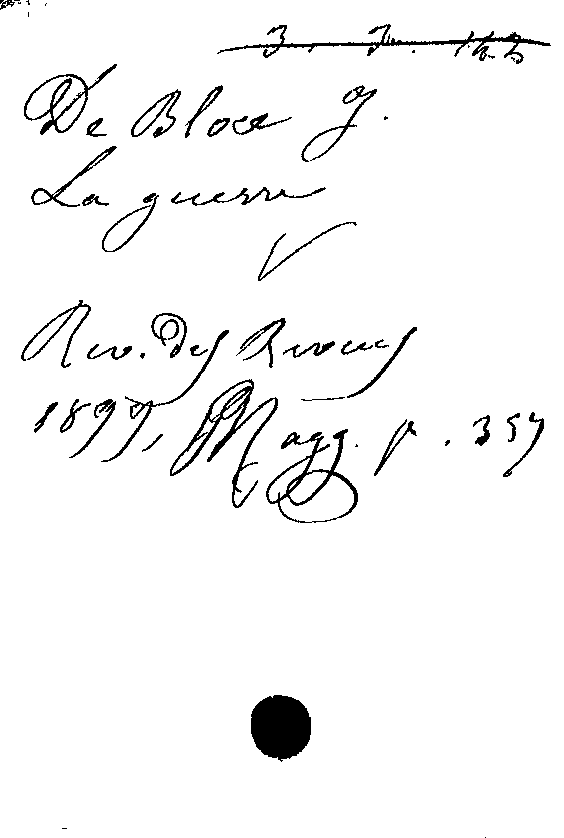 De Bloce J.
La guerre
Rev. des Revues
1899, Magg. p. 357